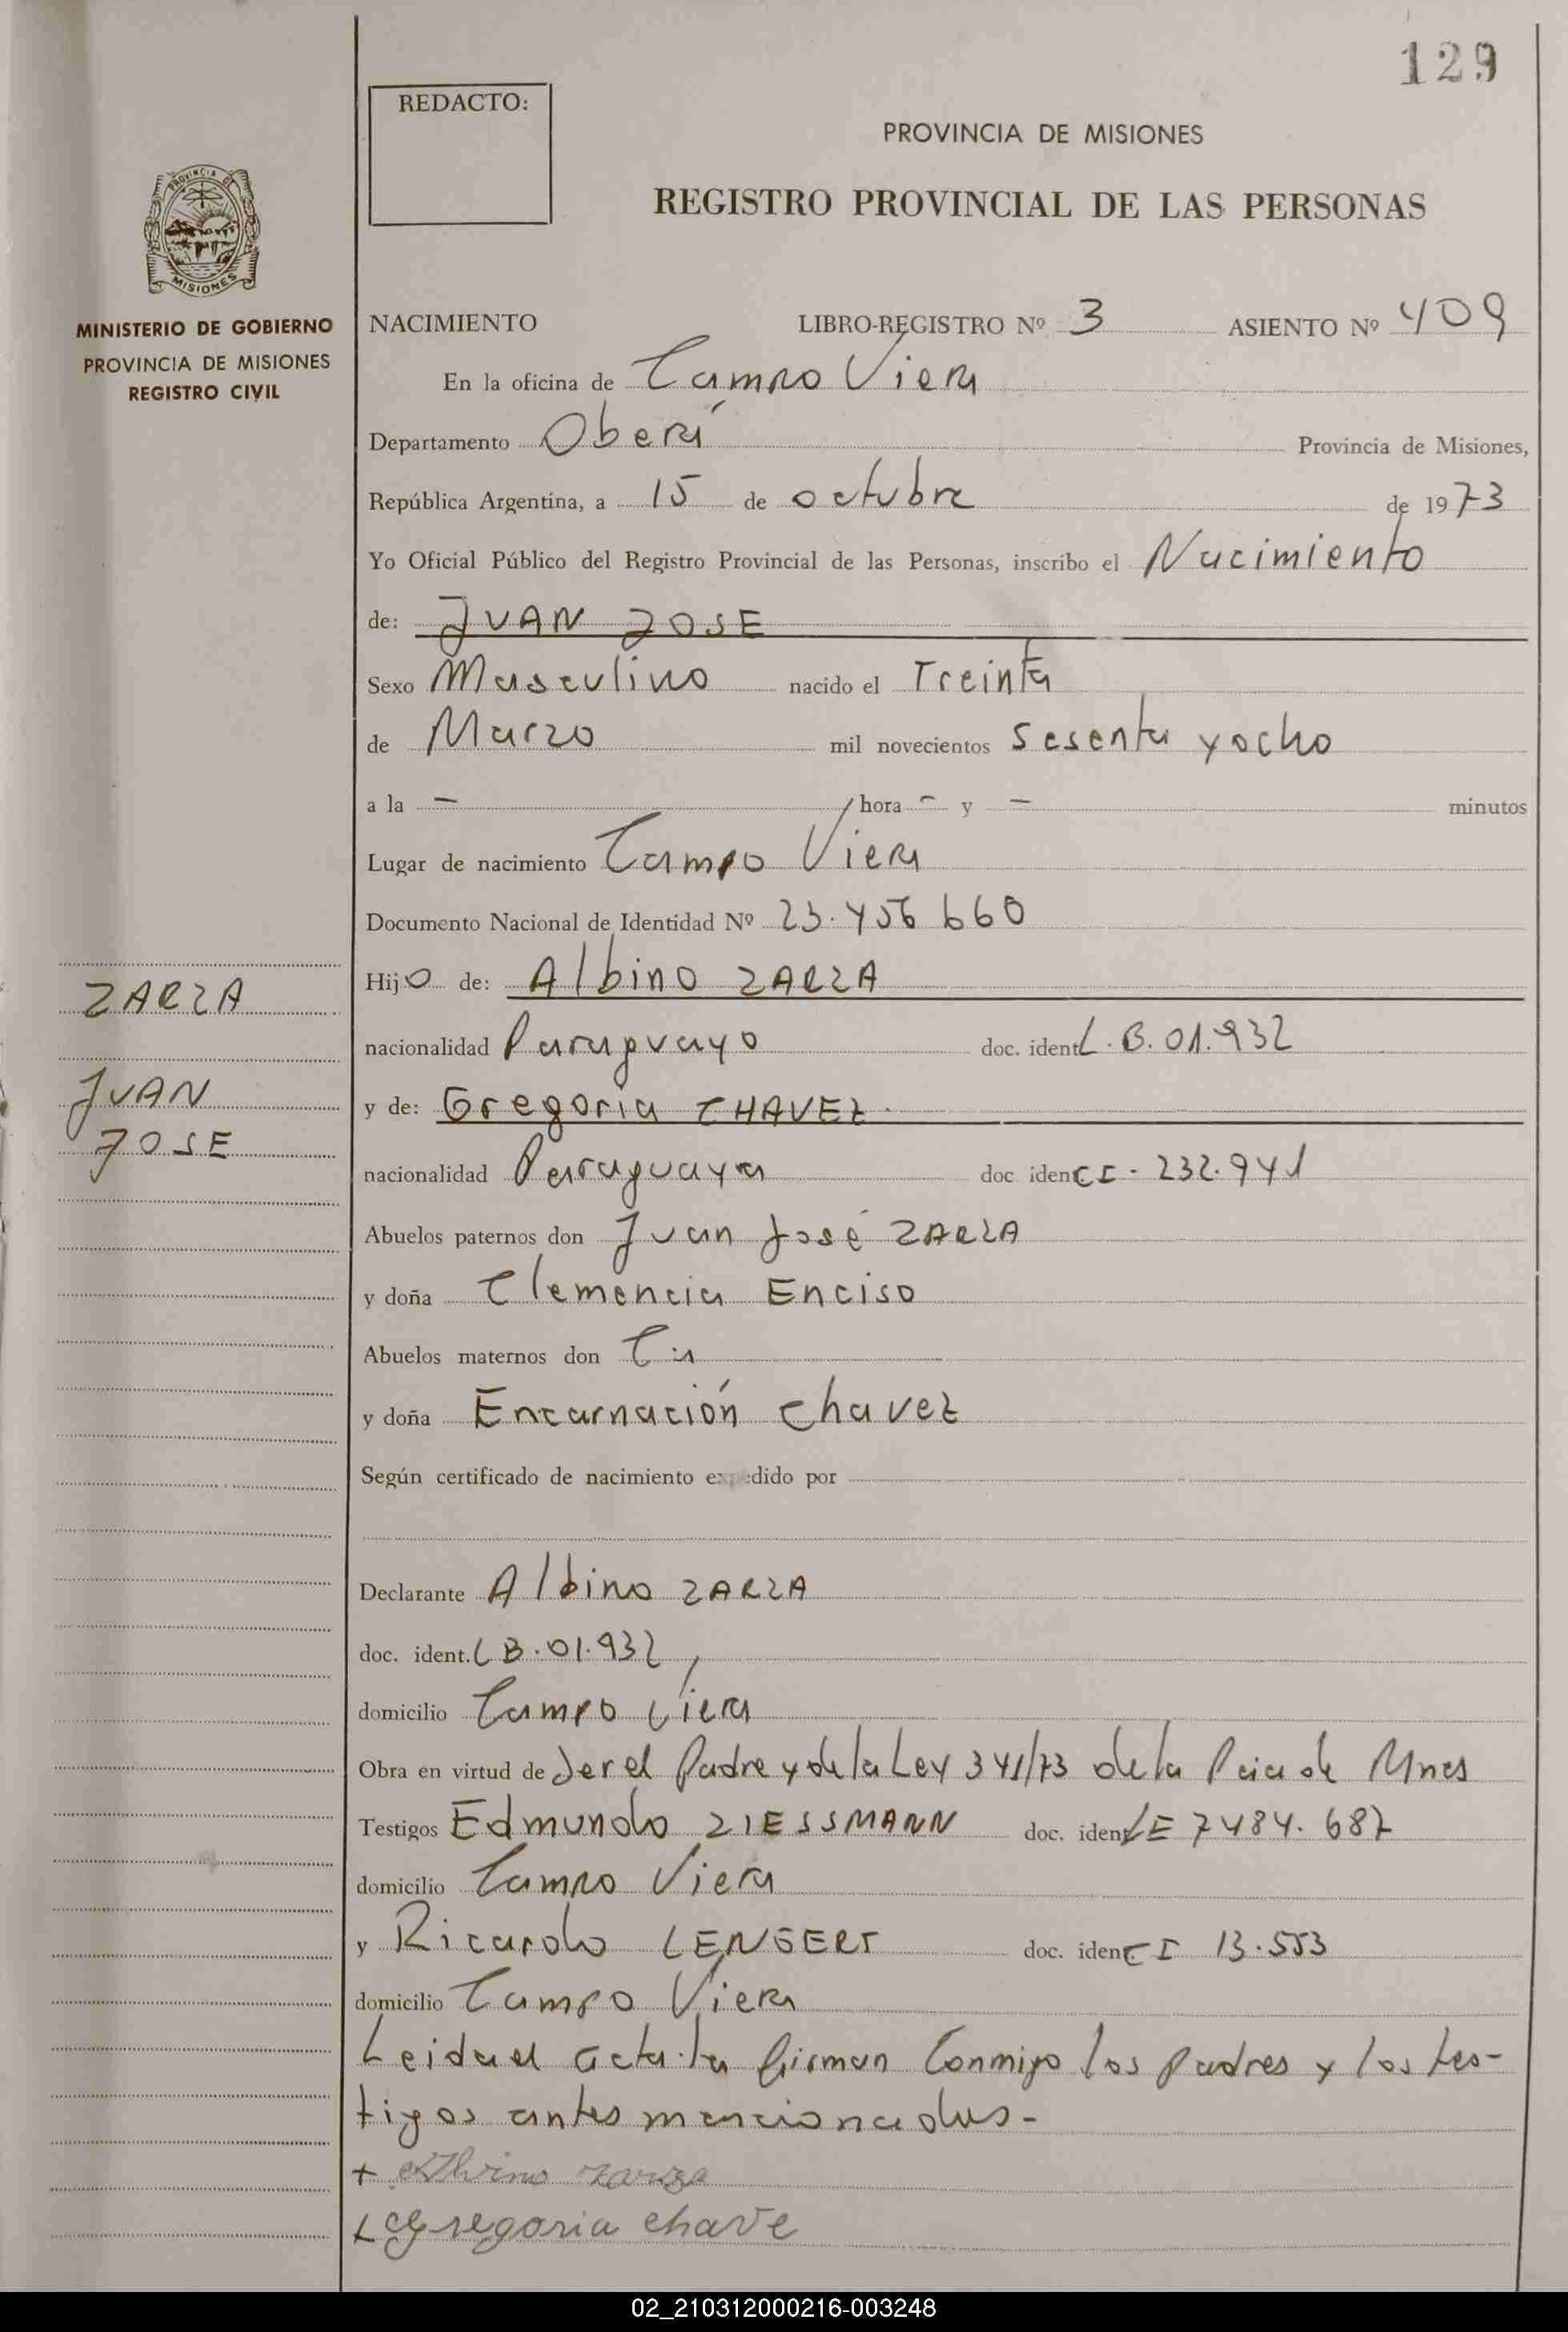 129
REDACTO:
PROVINCIA DE MISIONES
REGISTRO PROVINCIAL DE LAS PERSONAS
PROVINCIA DE
MISIONES
MINISTERIO DE GOBIERNO
PROVINCIA DE MISIONES
REGISTRO CIVIL
NACIMIENTO LIBRO-REGISTRO Nº 3 ASIENTO Nº 409
En la oficina de Campo Viera
Departamento Oberá Provincia de Misiones,
República Argentina, a 15 de octubre de 1973
Yo Oficial Público del Registro Provincial de las Personas, inscribo el Nacimiento
de: JUAN JOSE
Sexo Masculino nacido el Treinta
de Marzo mil novecientos sesenta y ocho
a la - hora - y - minutos
Lugar de nacimiento Campo Viera
Documento Nacional de Identidad Nº 23.456 660
Hijo de: Albino ZARZA
nacionalidad Paraguayo doc. ident L.B.01.932
ZARZA
y de: Gregoria CHAVEZ.
JUAN
JOSE
nacionalidad Paraguaya doc iden CI - 232.941
Abuelos paternos don Juan José ZARZA
y doña Clemencia Enciso
Abuelos maternos don
y doña Encarnación Chavez
Según certificado de nacimiento expedido por
Declarante Albino ZARZA
doc. ident. L B.01.932
domicilio Campo Viera
Obra en virtud de ser el Padre y de la Ley 341/73 de la Pcia de Mnes
Testigos Edmundo ZIESSMANN doc. iden LE 7484.687
domicilio Campo Viera
y Ricardo LENGERT doc. iden CI 13.553
domicilio Campo Viera
Leida el acta la firman Conmigo los padres y los tes-
tigos antes mencionados-
+ Albino zarza
Gregoria chave
02_210312000216-003248